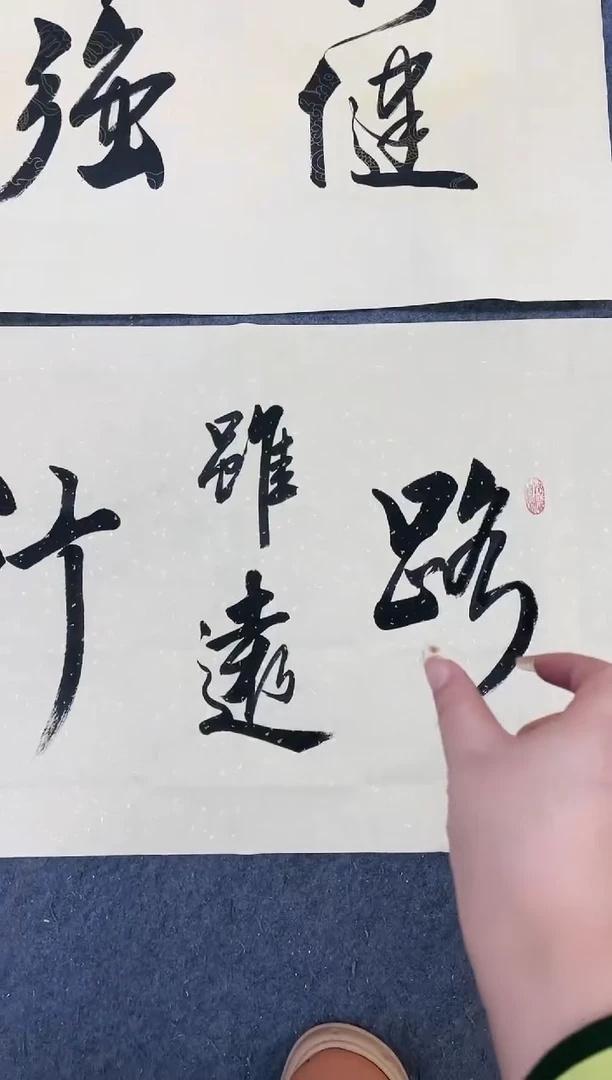 健強
路雖遠行